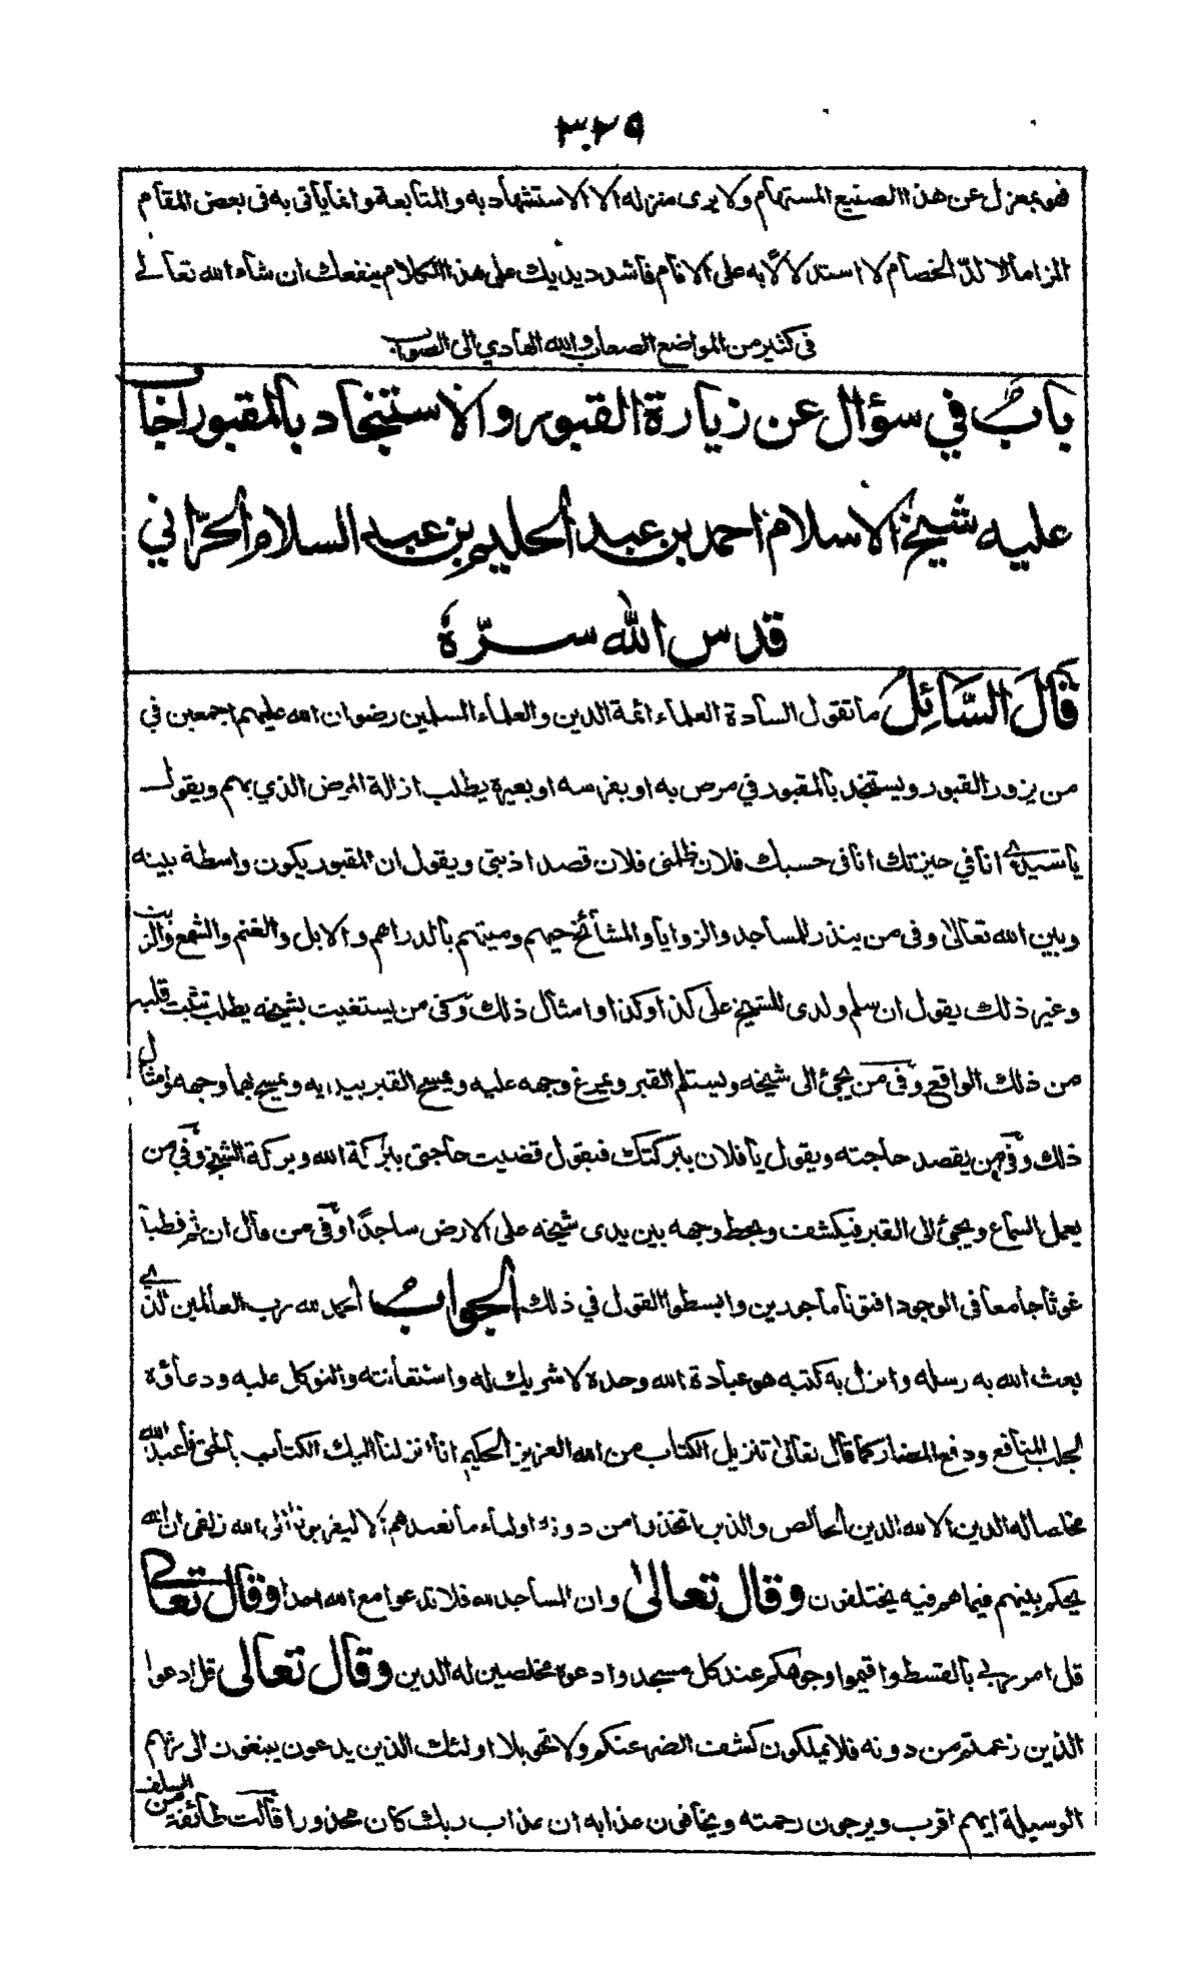 ٣٢٩
فهو بمعزل عن هذا الصنيع المستهام ولا يرى منزله الا الاستشهاد به والمتابعة وانما يأتى به فى بعض المقام
الزاما لالدّ الخصام لا استدلالًا به على الانام فاشدد يديك على هذا الكلام ينفعك ان شاء الله تعالى
فى كثير من المواضع الصعاب والله الهادي الى الصواب
بابٌ في سؤال عن زيارة القبور والاستنجاد بالمقبور اجاب
عليه شيخ الاسلام احمد بن عبد الحليم بن عبد السلام الحرّاني
قدس الله سرّه
قَالَ السَّائِلُ ما تقول السادة العلماء ائمة الدين والعلماء المسلمين رضوان الله عليهم اجمعين في
من يزور القبور ويستنجد بالمقبور في مرض به او بفرسه او بعيره يطلب ازالة المرض الذي بهم ويقول
يا سيدي انا في حيزتك انا فى حسبك فلان ظلمنى فلان قصد اذيتى ويقول ان المقبور يكون واسطة بينه
وبين الله تعالى وفى من ينذر للمساجد والزوايا والمشائخ حيهم وميتهم بالدراهم والابل والغنم والشمع والزيت
وغير ذلك يقول ان سلم ولدى للشيخ على كذا وكذا وامثال ذلك وفى من يستغيث بشيخه يطلب تثبت قلبه
من ذلك الواقع وفى من يجئ الى شيخه ويستلم القبر ويمرغ وجهه عليه ويمسح القبر بيديه ويمسح بها وجهه وامثال
ذلك وفى من يقصد حاجته ويقول يا فلان ببركتك فيقول قضيت حاجتى ببركة الله وبركة الشيخ وفي من
يعمل السماع ويجئ الى القبر فيكشف ويحط وجهه بين يدى شيخه على الارض ساجدًا وفى من قال ان ثم قطبا
غوثا جامعا فى الوجود افتونا ماجورين وابسطوا القول في ذلك الجواب الحمد لله رب العالمين الذي
بعث الله به رسله وانزل به كتبه هو عبادة الله وحده لا شريك له واستعانته والتوكل عليه ودعاؤه
لجلب المنافع ودفع المضار كما قال تعالى تنزيل الكتاب من الله العزيز الحكيم انا انزلنا اليك الكتاب بالحق فاعبد الله
مخلصا له الدين الا لله الدين الخالص والذين اتخذوا من دونه اولياء ما نعبدهم الا ليقربونا الى الله زلفى ان الله
يحكم بينهم فيما هم فيه يختلفون وقال تعالى وان المساجد لله فلا تدعوا مع الله احدا وقال تعالى
قل امر ربي بالقسط واقيموا وجوهكم عند كل مسجد وادعوه مخلصين له الدين وقال تعالى قل ادعوا
الذين زعمتم من دونه فلا يملكون كشف الضر عنكم ولا تحويلا اولئك الذين يدعون يبتغون الى ربهم
الوسيلة ايهم اقرب ويرجون رحمته ويخافون عذابه ان عذاب ربك كان محذورا قالت طائفة من السلف